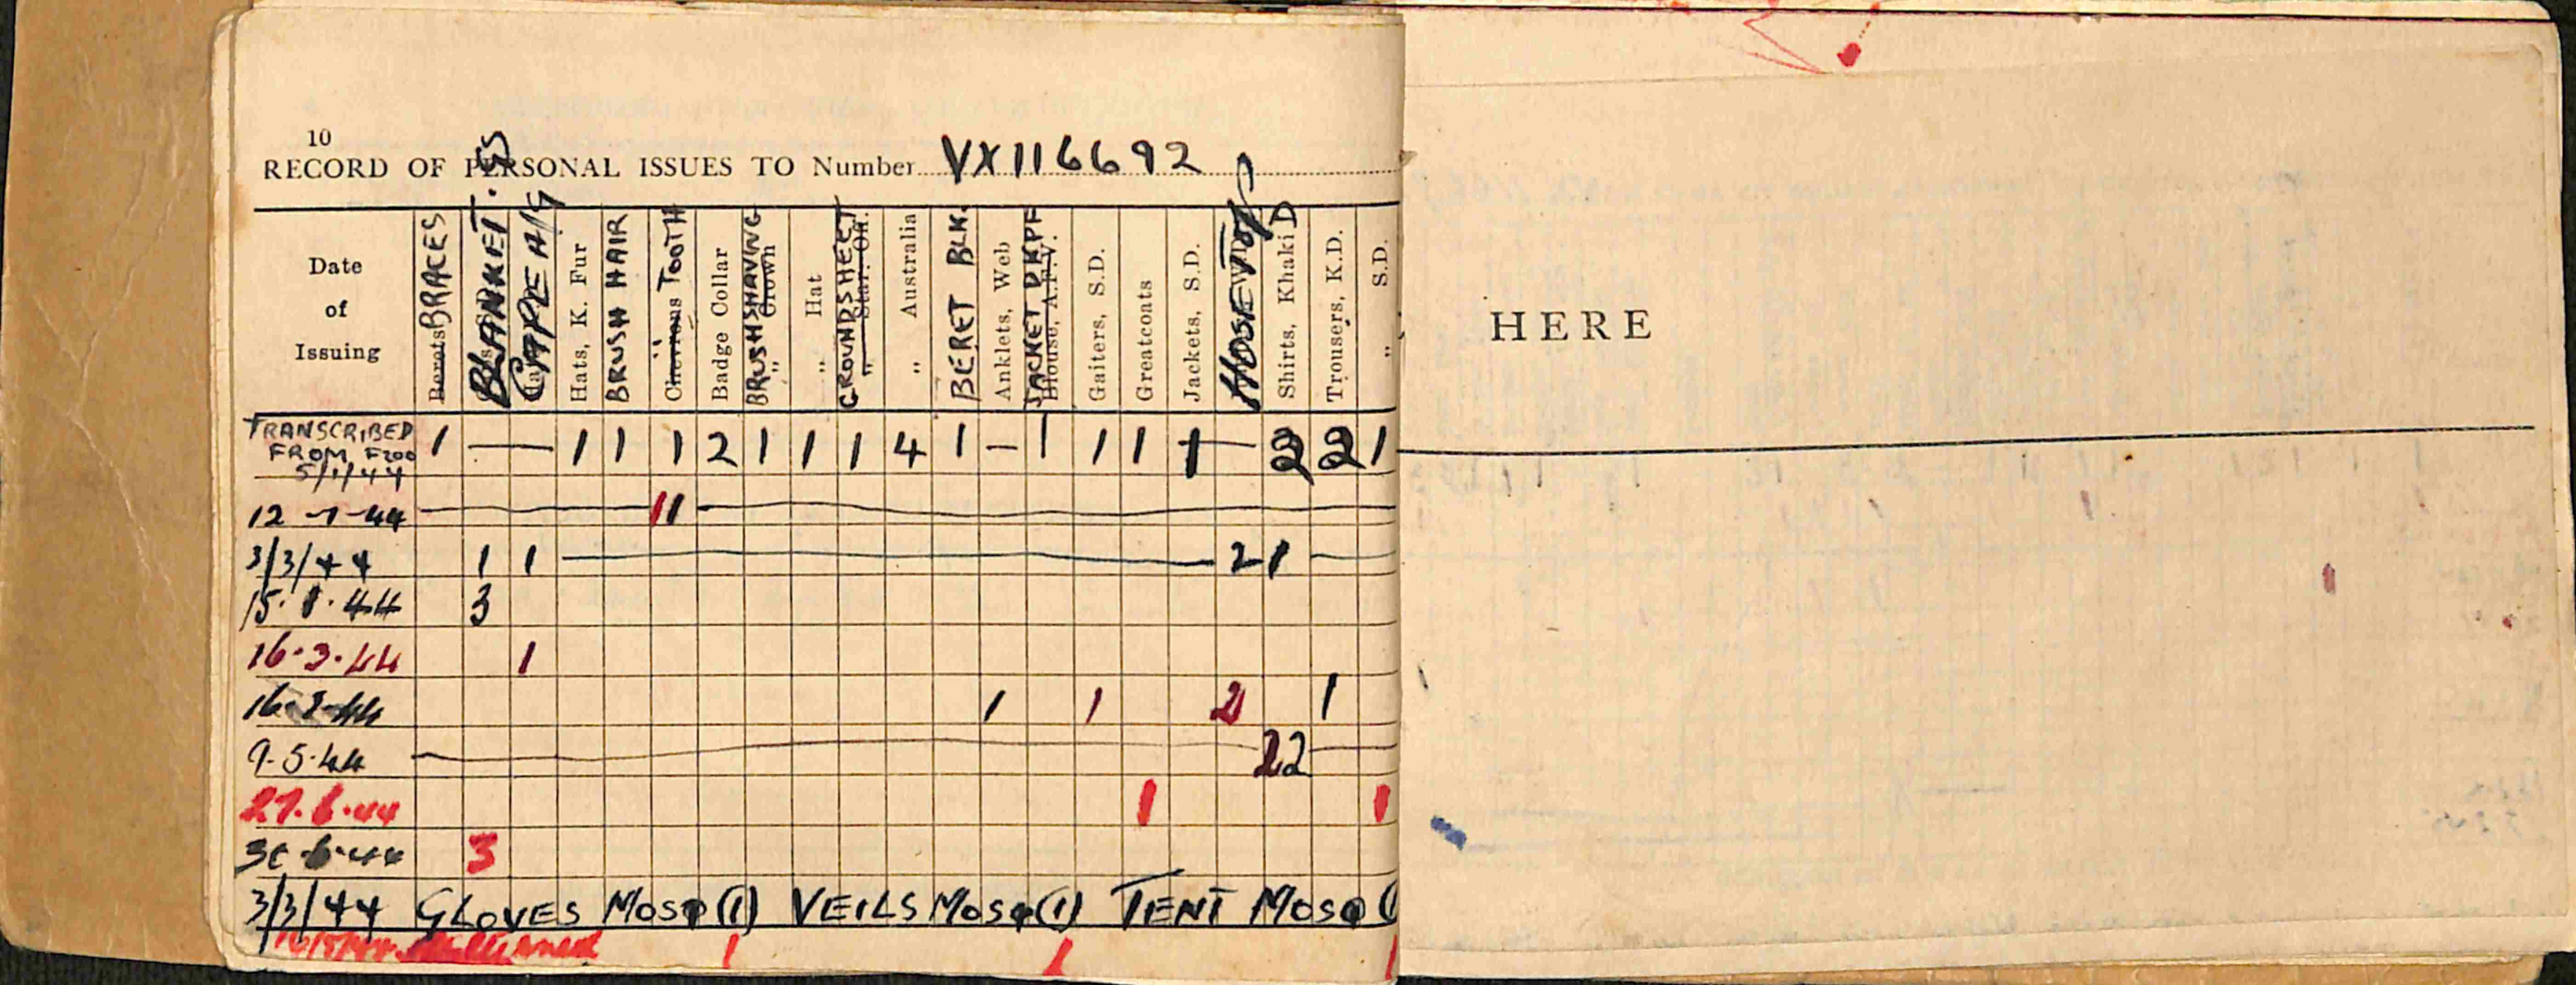 10
RECORD OF PERSONAL ISSUES TO Number VX116692
Date of Issuing
Berets BRACES
BLANKET. GS
Hats, K. Fur
BRUSH HAIR
Chevrons TOOTH
Badge Collar
BRUSH SHAVING
„ Crown
„ Hat
GROUNDSHEET
„ Star. Off.
„ Australia
BERET BLK.
Anklets, Web
JACKET
Blouse, A.F.V.
Gaiters, S.D.
Greatcoats
Jackets, S.D.
HOSE
Shirts, Khaki D
Trousers, K.D.
„ S.D.
HERE
TRANSCRIBED FROM F200 5/1/44 1 — 1 1 1 2 1 1 1 4 1 – 1 1 1 1 — 2 2 1
12-1-44 1 1
3/3/44 1 1 2 1
15.1.44 3
16.3.44 1
16-3-44 1 1 2 1
9.5.44 2 2
27.6.44 1 1
30.6.44 3
3/3/44 GLOVES MOSQ (1) VEILS MOSQ (1) TENT MOSQ (
1 1 1